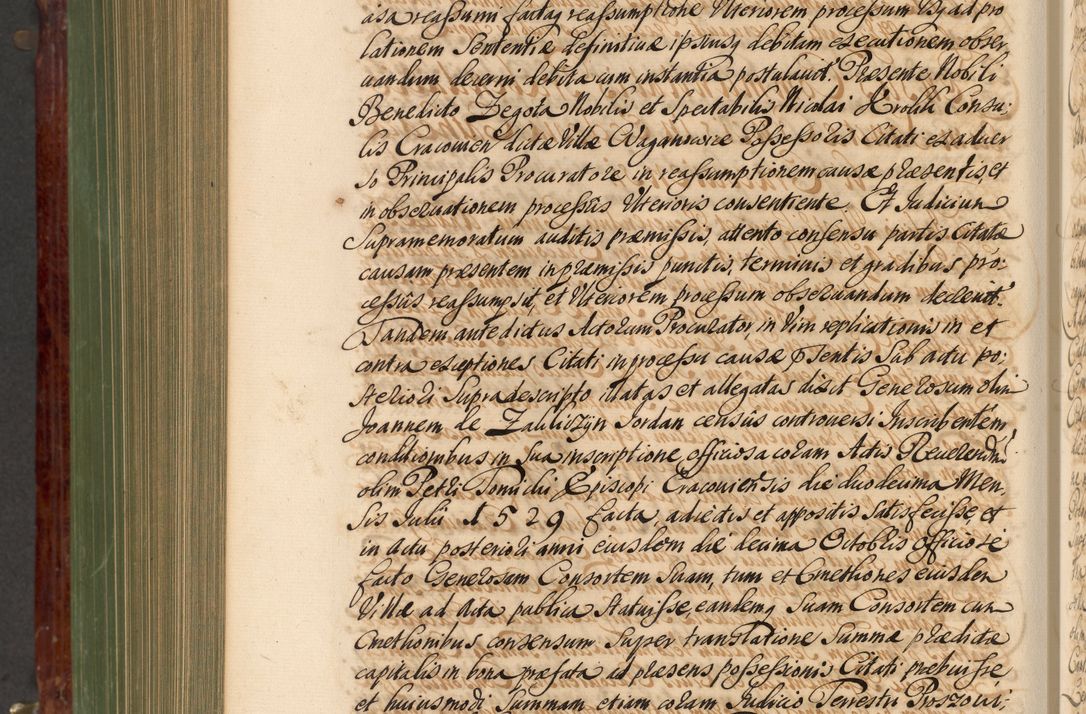 asa reassumi factaq reassumptione Ulteriorem processum usq ad pro
lationem Sententiæ definitiuæ ipsiusq debitam executionem obser
uandum decerni debita cum instantia postulauit. Præsente Nobili
Benedicto Zegota Nobilis et Spectabilis Nicolai Krolik Consu:
lis Cracouien dictæ Villæ Waganowice Possessoris Citati ex aduer
so Principalis Procuratore in reassumptionem causæ præsentis, et
in obseruationem processus Ulterioris consentiente. Et Judicium
Supramemoratum auditis præmissis, attento consensu partis Citatæ
causam præsentem in præmissis punctis, terminis et gradibus pro:
cessus reassumpsit, et Ulteriorem processum obseruandum decreuit.
Tandem antedictus Actorum Procurator, in Vim replicationis in et
contra exceptiones Citati in processu causæ pSentis Sub actu po:
steriori Supradescripto illatas et allegatas dixit Generosum olim
Joannem de Zakliczyn Jordan census controuersi Inscribentem
conditionibus in Sua inscriptione officiosa coram Actis Reuerendmi
olim Petri Tomicki Episcopi Cracouiensis die duodecima Men,
sis Julii 1529 facta, adiectis et appositis Satisfecisse, et
in Actu posteriori anni eiusdem die decima Octobris officiose
facto Generosam Consortem Suam, tum et Cmethones eiusdem
Villæ ad Acta publica Statuisse, eandemq Suam Consortem cum
Cmethonibus consensum Super translatione Summæ prædictæ
capitalis in bona præfata ad præsens possessionis Citati præbuisse
et huiusmodi Summam etiam coram Judicio Terrestri Proszoui: